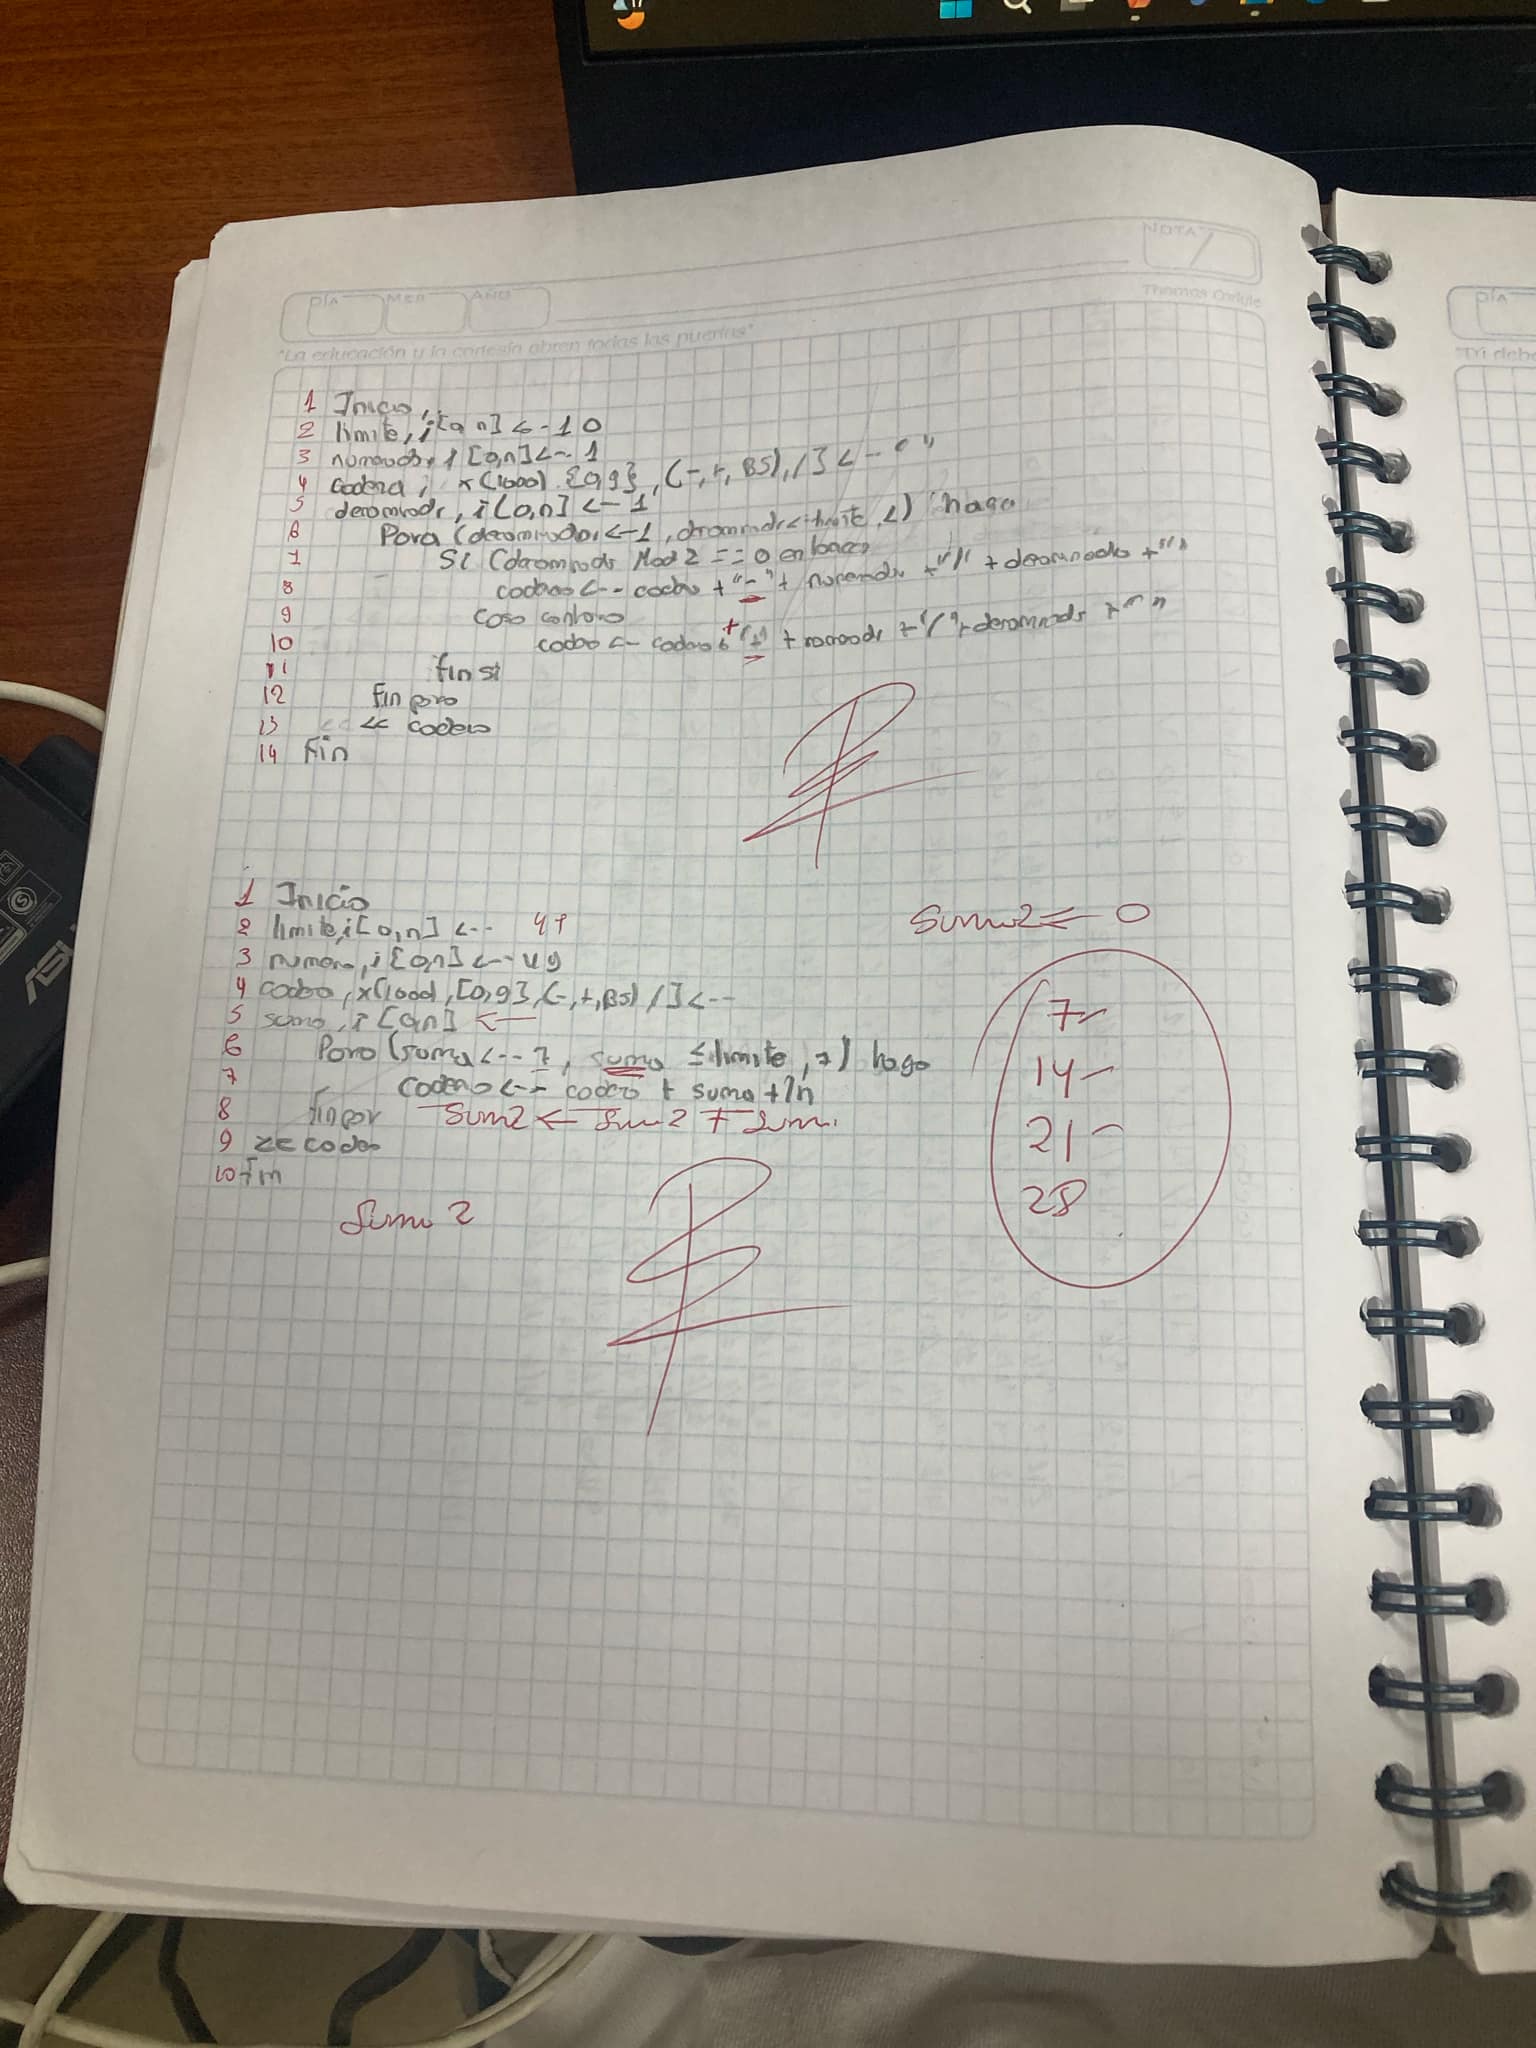 NOTA
DÍA MES AÑO
Thomas Carlyle
"La educación y la cortesía abren todas las puertas"
1 Inicio
2 limite, i [0,n] <-- 10
3 numerador, i [0,n] <-- 1
4 cadena, x(1000) {0,9}, (-,+,BS), /] <-- " "
5 denominador, i [0,n] <-- 1
6 Para (denominador <-- 1, denominador < limite, ) haga
7 Si (denominador Mod 2 == 0 entonces
8 cadena <-- cadena + "-" + numerador + "/" + denominador + " "
9 caso contrario
10 cadena <-- cadena + "+" + numerador + "/" + denominador + " "
11 fin si
12 fin para
13 << cadena
14 Fin
1 Inicio
2 limite, i [0,n] <-- 49
3 numero, i [0,n] <-- 49
4 cadena, x(1000), [0,9}, (-,+,BS) /] <--
5 suma, i [0,n] <--
6 Para (suma <-- 7, suma ≤ limite, 7) haga
7 cadena <-- cadena + suma + \n
8 fin par Suma2 <- Suma2 + Suma
9 << cadena
10 fin
Suma 2
Suma2 <= 0
7
14
21
28
ASUS
DÍA
"Tri debe